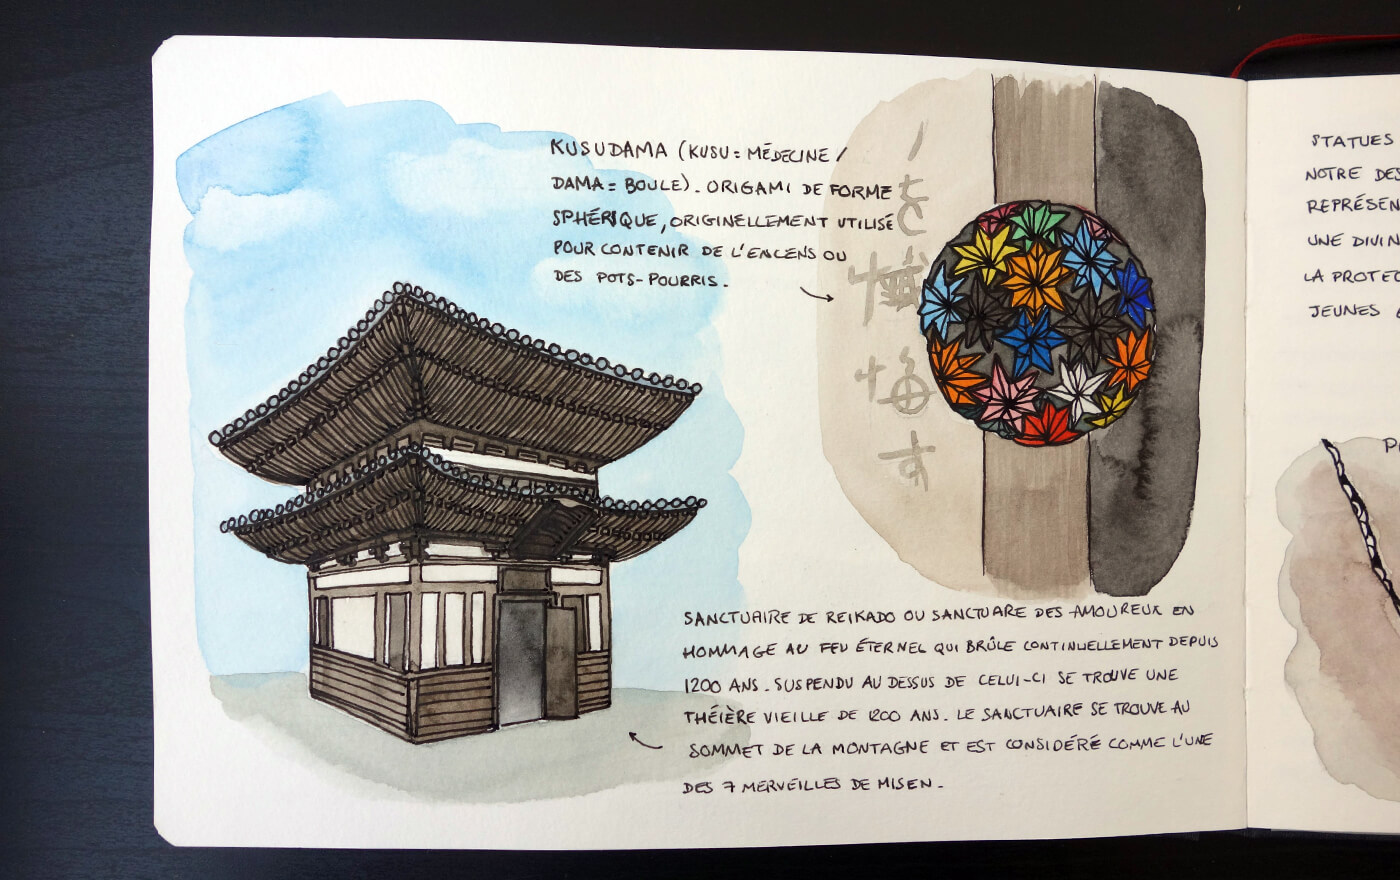 KUSUDAMA (KUSU = MÉDECINE /
DAMA = BOULE). ORIGAMI DE FORME
SPHÉRIQUE, ORIGINELLEMENT UTILISÉ
POUR CONTENIR DE L'ENCENS OU
DES POTS-POURRIS.
SANCTUAIRE DE REIKADO OU SANCTUARE DES AMOUREUX EN
HOMMAGE AU FEU ÉTERNEL QUI BRÛLE CONTINUELLEMENT DEPUIS
1200 ANS. SUSPENDU AU DESSUS DE CELUI-CI SE TROUVE UNE
THÉIÈRE VIEILLE DE 1200 ANS. LE SANCTUAIRE SE TROUVE AU
SOMMET DE LA MONTAGNE ET EST CONSIDÉRÉ COMME L'UNE
DES 7 MERVEILLES DE MISEN.
STATUES
NOTRE DES
REPRÉSEN
UNE DIVIN
LA PROTEC
JEUNES